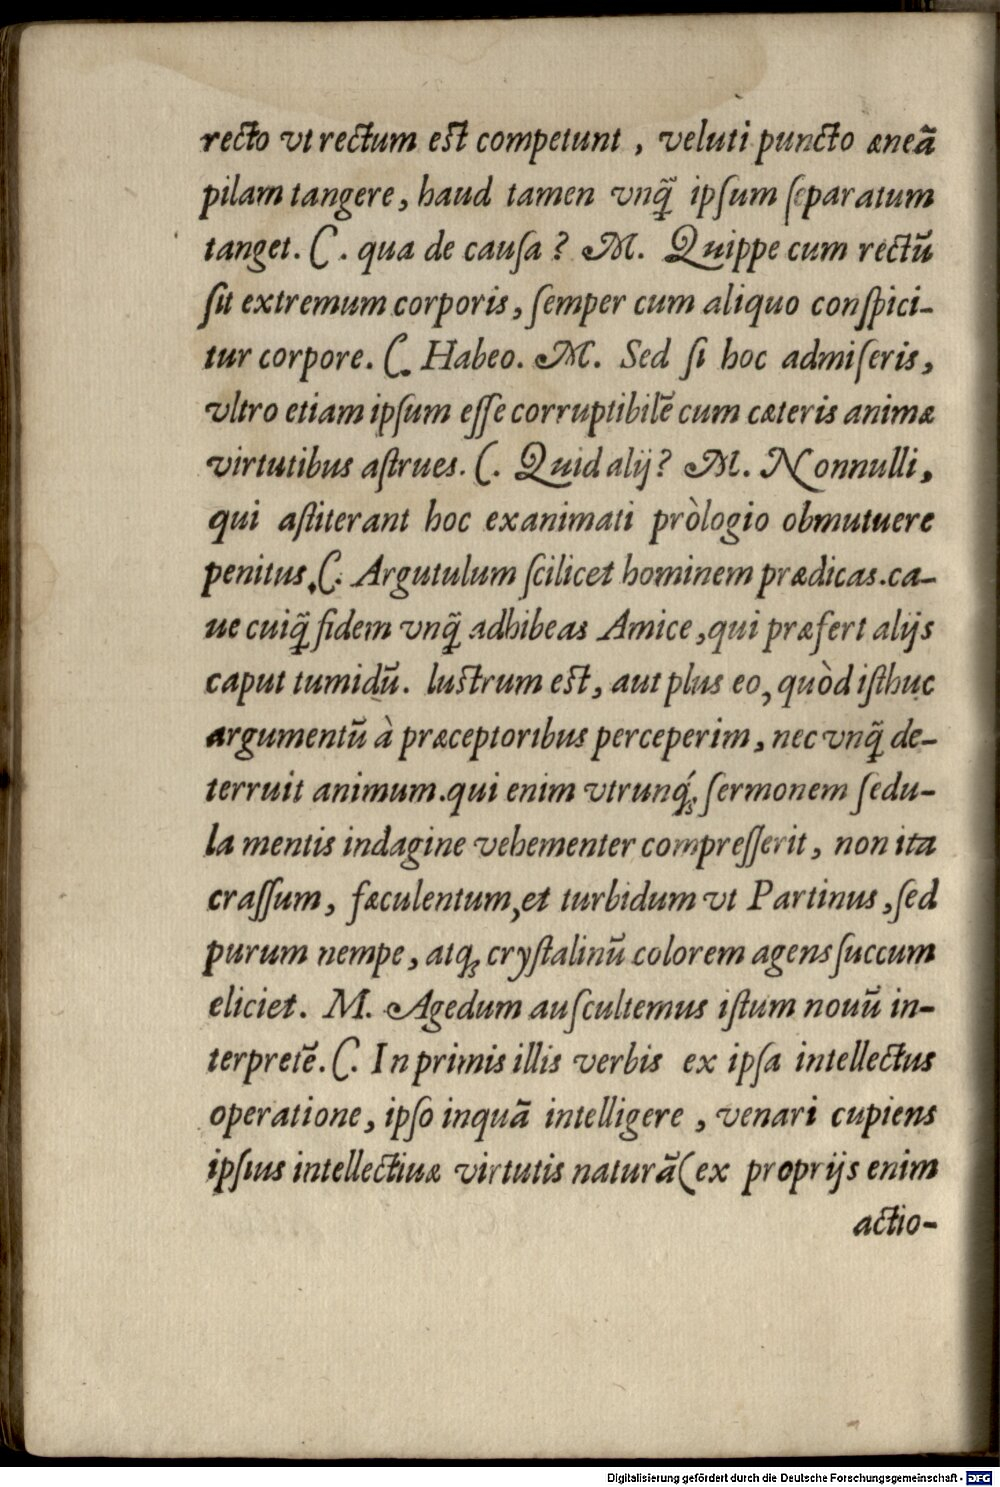 recto vt rectum est competunt , veluti puncto æneã
pilam tangere, haud tamen vnq̃ ipſum ſeparatum
tanget. C. qua de cauſa ? M. Quippe cum rectũ
ſit extremum corporis, ſemper cum aliquo conſpici-
tur corpore. C. Habeo. M. Sed ſi hoc admiſeris,
vltro etiam ipſum eſſe corruptibilẽ cum cæteris animæ
virtutibus aſtrues. C. Quid alij? M. Nonnulli,
qui aſtiterant hoc exanimati pròlogio obmutuere
penitus. C. Argutulum ſcilicet hominem prædicas. ca-
ue cuiq̃ fidem vnq̃ adhibeas Amice, qui præfert alijs
caput tumidũ. luſtrum est, aut plus eo, quòd iſthuc
argumentũ à præceptoribus perceperim, nec vnq̃ de-
terruit animum. qui enim vtrunq́; ſermonem ſedu-
la mentis indagine vehementer compreſſerit, non ita
craſſum, fæculentum, et turbidum vt Partinus, ſed
purum nempe, atq; cryſtalinũ colorem agens ſuccum
eliciet. M. Agedum auſcultemus iſtum nouũ in-
terpretẽ. C. In primis illis verbis ex ipſa intellectus
operatione, ipſo inquã intelligere , venari cupiens
ipſius intellectiuæ virtutis naturã (ex proprijs enim
actio-
Digitalisierung gefördert durch die Deutsche Forschungsgemeinschaft - DFG